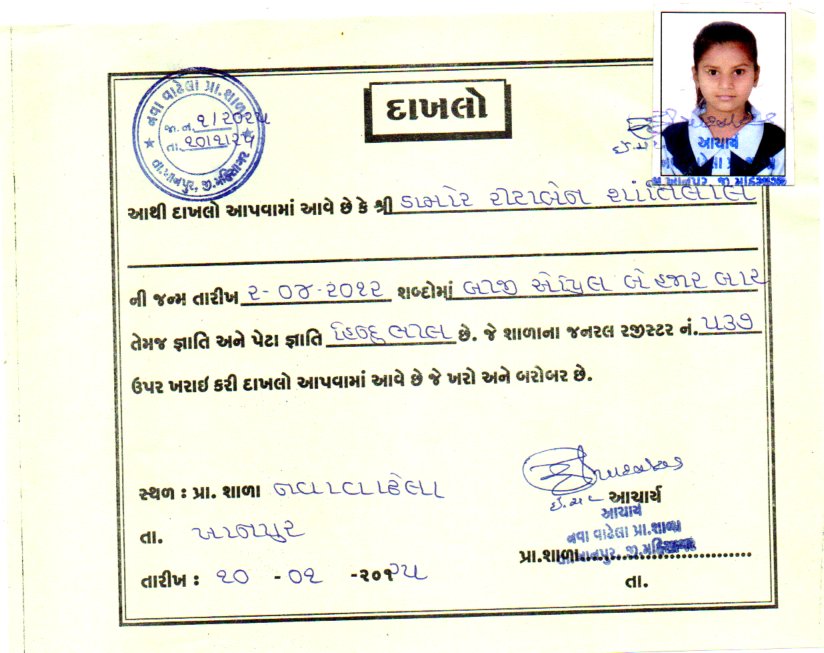 દાખલો
નવા વાઢેલા પ્રા.શાળા
જા.નં. ૧/૨૦૨૫
તા. ૧૦/૧/૨૫
તા.ખાનપુર, જી.મહિસાગર
આચાર્ય
નવા વાઢેલા પ્રા.શાળા
તા.ખાનપુર, જી.મહિસાગર
આથી દાખલો આપવામાં આવે છે કે શ્રી ડામોર રીટાબેન શાંતિલાલ
ની જન્મ તારીખ ૨-૦૪-૨૦૧૨ શબ્દોમાં બીજી એપ્રિલ બે હજાર બાર
તેમજ જ્ઞાતિ અને પેટા જ્ઞાતિ હિન્દુ ભીલ છે. જે શાળાના જનરલ રજીસ્ટર નં. ૫૩૭
ઉપર ખરાઈ કરી દાખલો આપવામાં આવે છે જે ખરો અને બરોબર છે.
સ્થળ : પ્રા. શાળા નવાવાઢેલા
ઈ.ચા. આચાર્ય
આચાર્ય
તા. ખાનપુર
નવા વાઢેલા પ્રા.શાળા
પ્રા.શાળા..............................
તા.ખાનપુર, જી.મહિસાગર
તારીખ : ૧૦ - ૦૧ -૨૦૨૫
તા.